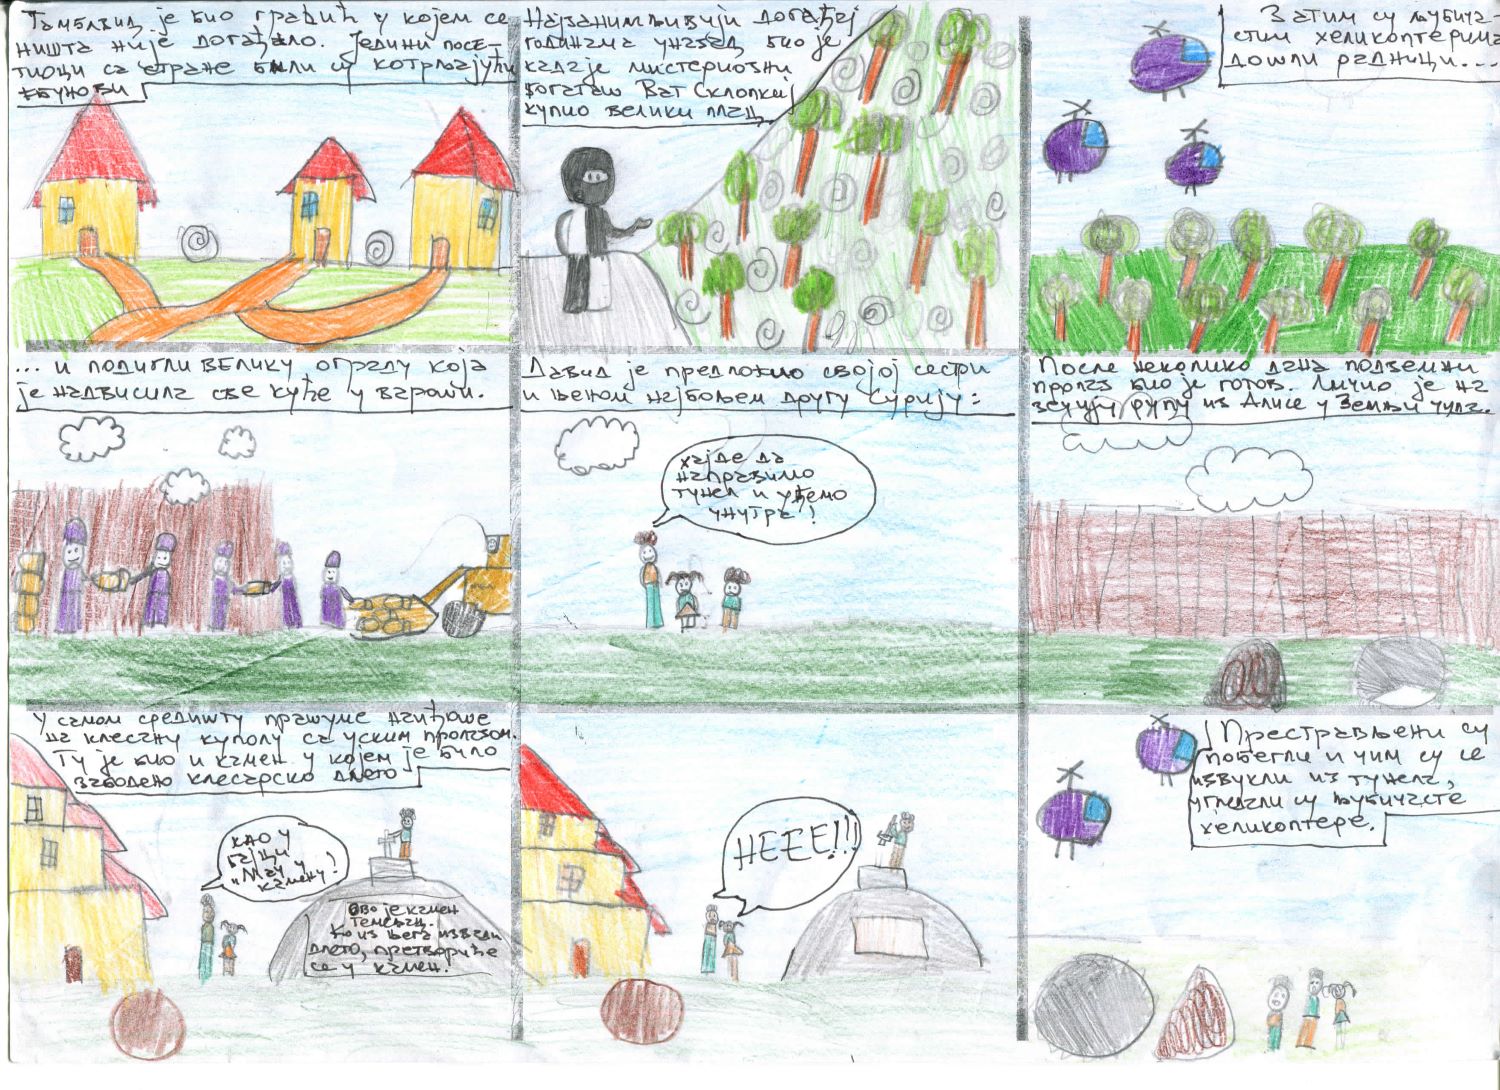 Тамблвид је био градић у којем се
ништа није догађало. Једини посе-
тиоци са стране били су котрљајући
жбунови
Најзанимљивији догађај
годинама уназад био је
када је мистериозни
богаташ Ват Склопкеј
купио велики плац
Затим су љубича-
стим хеликоптерима
дошли радници...
... и подигли велику ограду која
је надвисила све куће у вароши.
Давид је предложио својој сестри
и њеном најбољем другу Сурију:
хајде да
направимо
тунел и уђемо
унутра!
После неколико дана подземни
пролаз био је готов. Личио је на
зечију рупу из Алисе у Земљи чуда.
У самом средишту прашуме наиђоше
на клесану куполу са уским пролазом.
Ту је био и камен у којем је било
забодено клесарско длето
као у
бајци
„Мач у
камену!
Ово је камен
темељац.
Ко из њега извади
длето, претвориће
се у камен.
НЕЕЕ!!!
Престрављени су
побегли и чим су се
извукли из тунела,
угледали су љубичасте
хеликоптере.